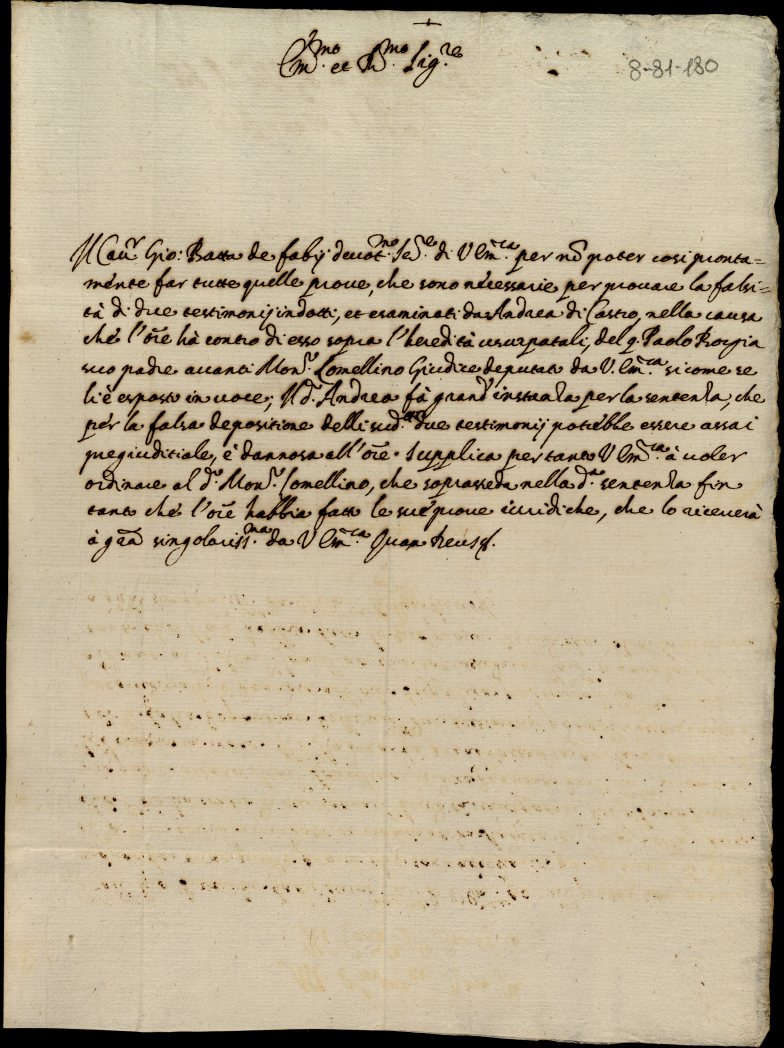 +
Em.mo et R.mo Sig.re
8-81-180
Il Cau.r Gio: Batta de fabij deuot.mo Se.re di V Em.ca per nõ poter cosi pronta=
mente far tutte quelle proue, che sono necessarie per prouare la falsi=
tà di due testimonij indotti, et esaminati da Andrea di Castro, nella causa
che l'ore hà contro di esso sopra l'heredità usurpatali, del q. Paolo
suo padre auanti Mon.r Lomellino Giudice deputato da V. Em.ca si come se
li è esposto in uoce; Il d.o Andrea fà grand' instanza per la sentenza, che
per la falsa depositione delli sud.ti due testimonij potrebbe essere assai
pregiuditiale, è dannosa all'ore. Supplica per tanto V Em.ca à uoler
ordinare al d.o Mon.r Lomellino, che soprasseda nella d.a sentenza fin
tanto che l'ore habbia fatto le sue proue iuridiche, che lo riceuerà
à gra singolariss.ma da V Em.ca Quam Deus &.